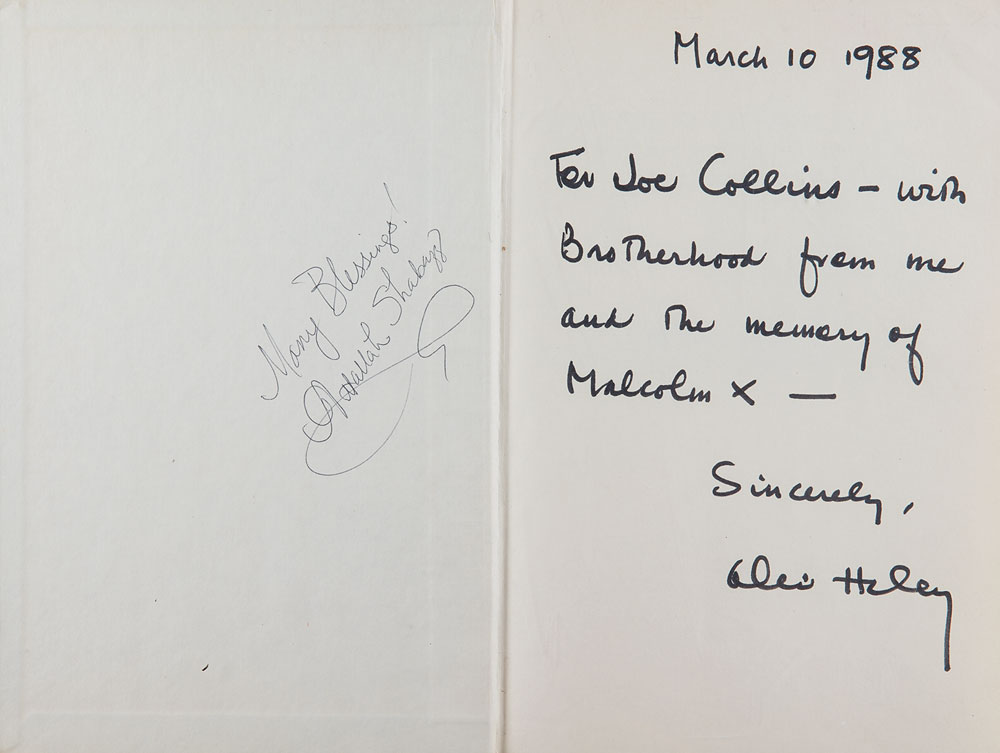 Many Blessings!
Attallah Shabazz
March 10 1988
For Joe Collins – with
Brotherhood from me
and the memory of
Malcolm X —
Sincerely,
Alex Haley